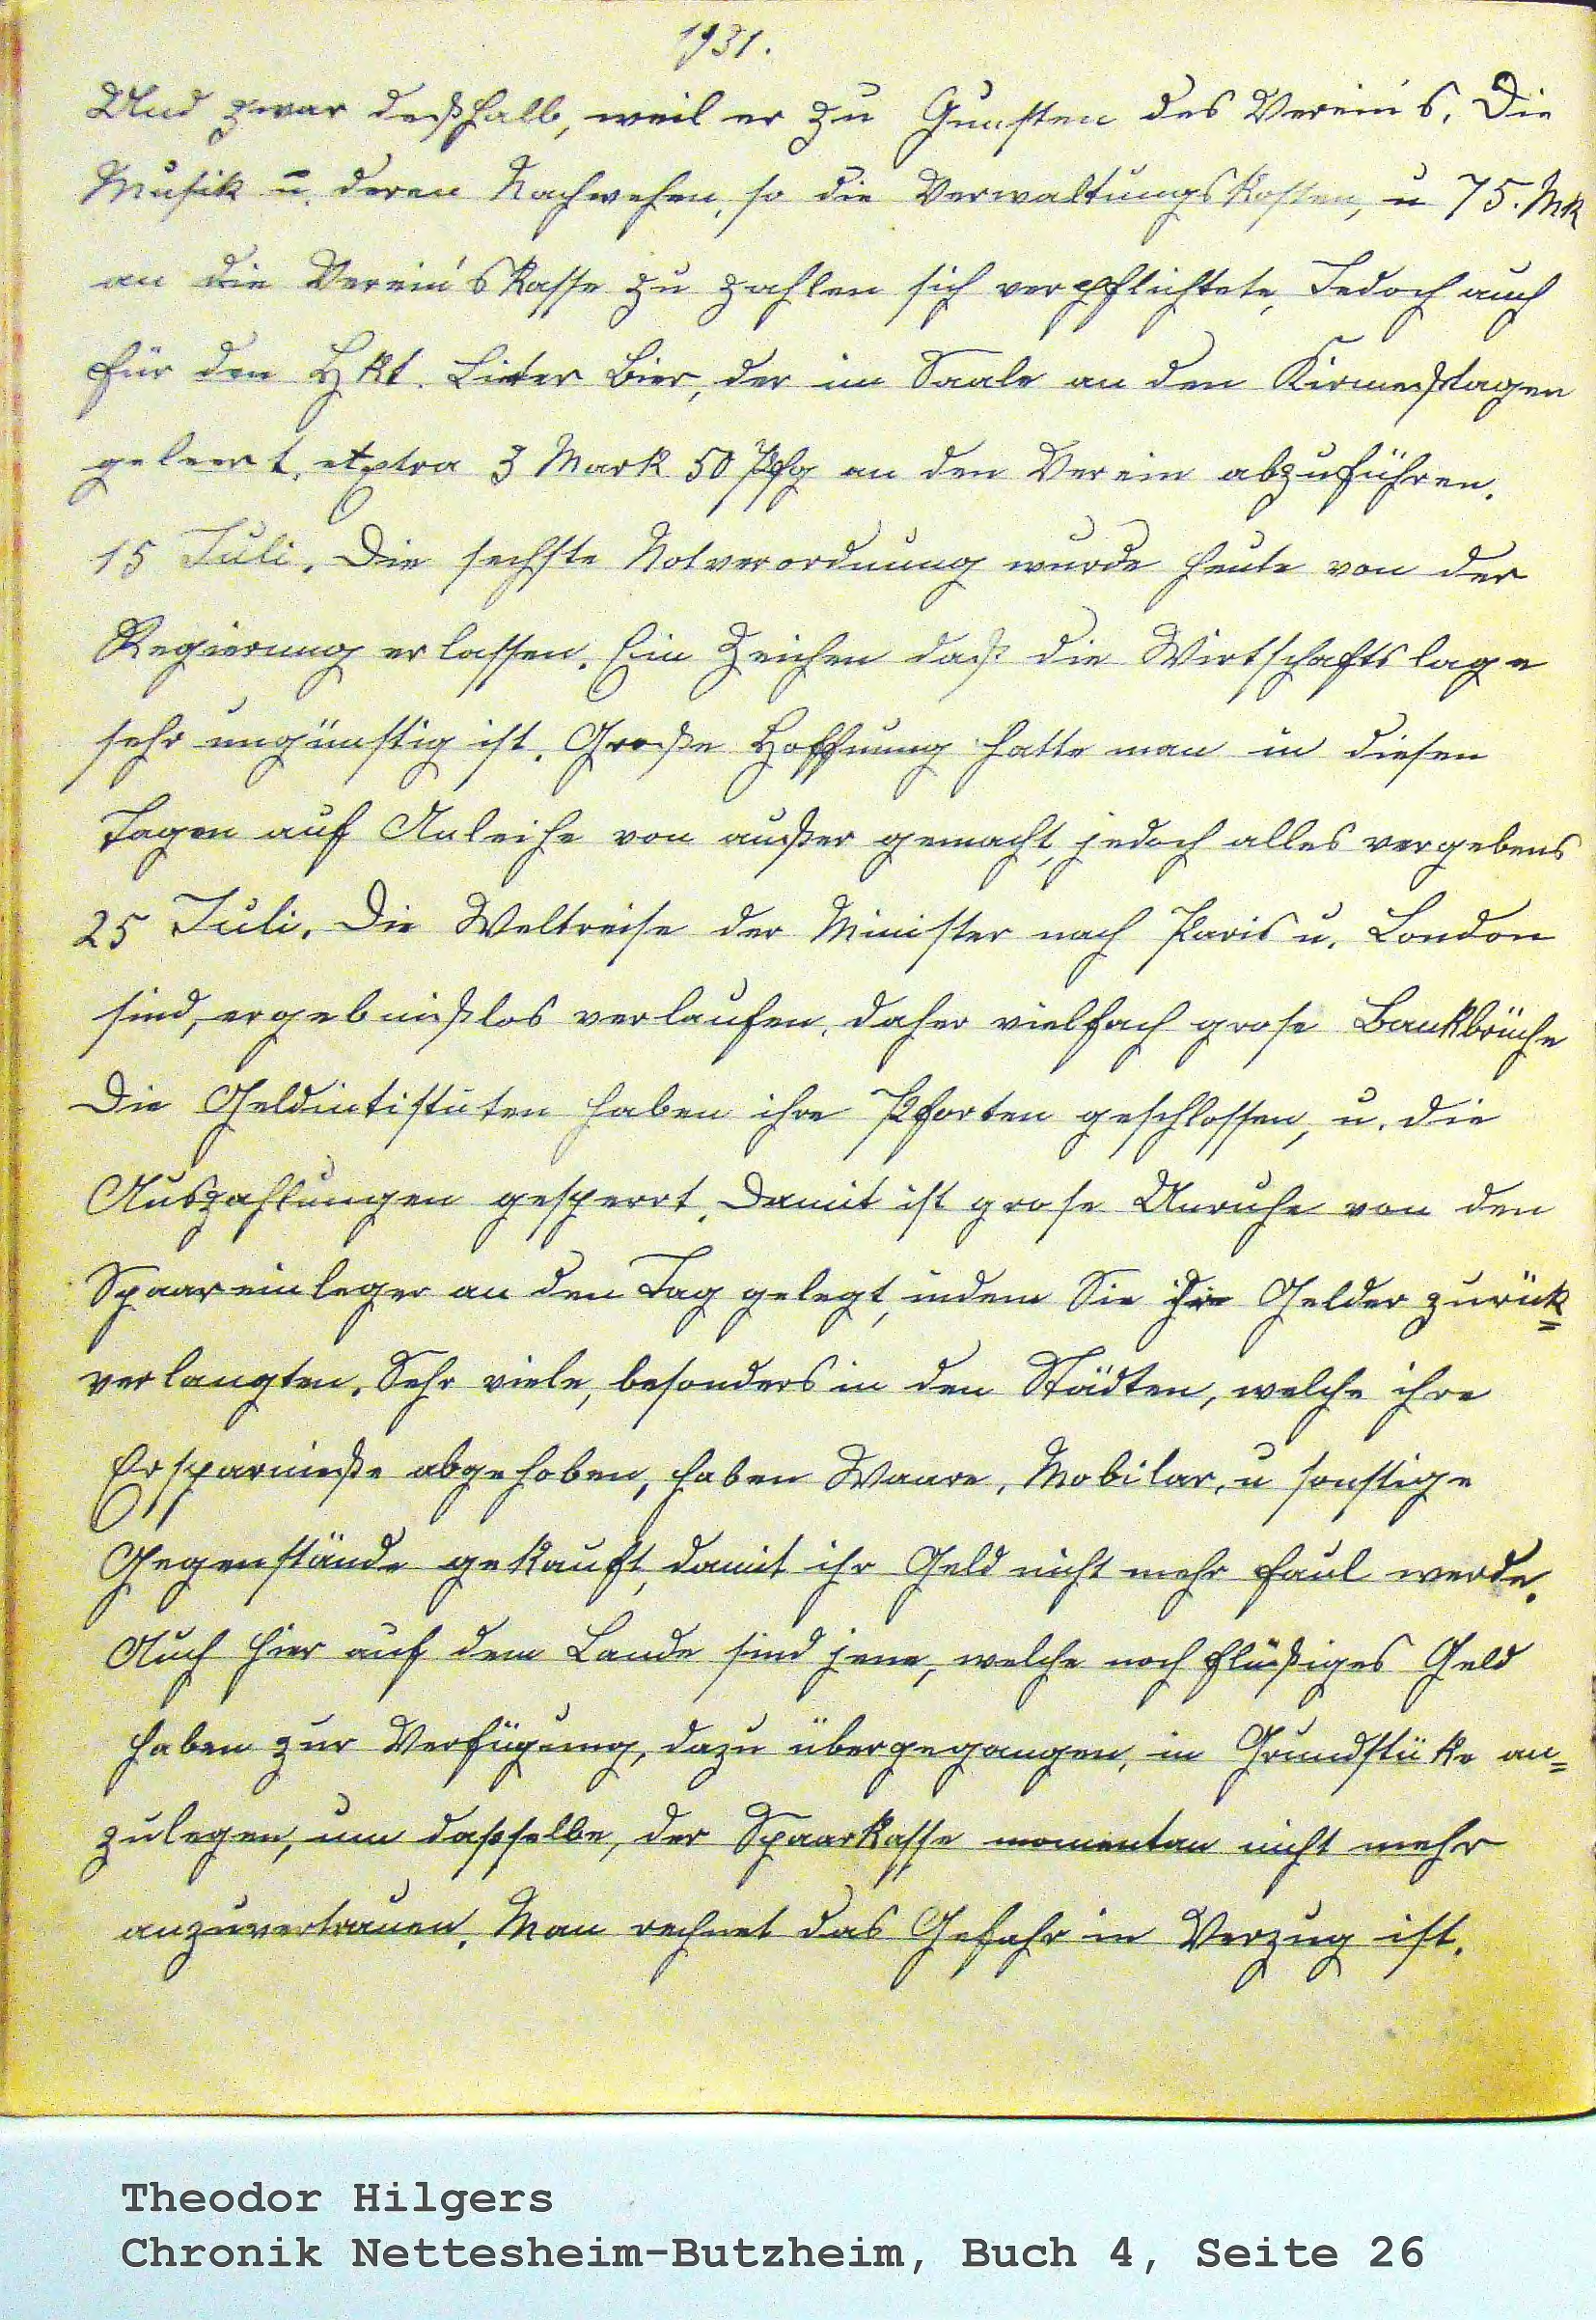 1931.
Und zwar deßhalb, weil er zu Gunsten des Verein's. Die
Musik u. deren Nachwehen, so die Verwaltungskosten, u 75. Mk
an die Verein'skasse zu zahlen sich verpflichtete, Jedoch auch
für den Hkt. Lieter Bier, der im Saale an den Kirmeßtagen
geleert, extra 3 Mark 50 Pfg an den Verein abzuführen.
15 Juli. Die sechste Notverordnung wurde heute von der
Regierung erlassen. Ein Zeichen daß die Wirtschaftslage
sehr ungünstig ist. Große Hoffnung hatte man in diesen
Tagen auf Anleihe von außer gemacht, jedoch alles vergebens
25 Juli. Die Weltreise der Minister nach Paris u. London
sind, ergebnißlos verlaufen, daher vielfach grose Bankbrüche
Die Geldintistuten haben ihre Pforten geschlossen, u. die
Auszahlungen gesperrt. Damit ist grose Unruhe von den
Spaareinleger an den Tag gelegt, indem Sie ihre Gelder zurük=
verlangten. Sehr viele, besonders in den Städten, welche ihre
Ersparnieße abgehoben, haben Waare, Mobilar, u sonstige
Gegenstände gekauft, damit ihr Geld nicht mehr faul werde.
Auch hier auf dem Lande sind jene, welche noch flüßiges Geld
haben zur Verfügung, dazu übergegangen, in Grundstüke an=
zulegen, um dasselbe, der Spaarkasse momentan nicht mehr
anzuvertrauen. Man rechnet das Gefahr in Verzug ist.
Theodor Hilgers
Chronik Nettesheim-Butzheim, Buch 4, Seite 26